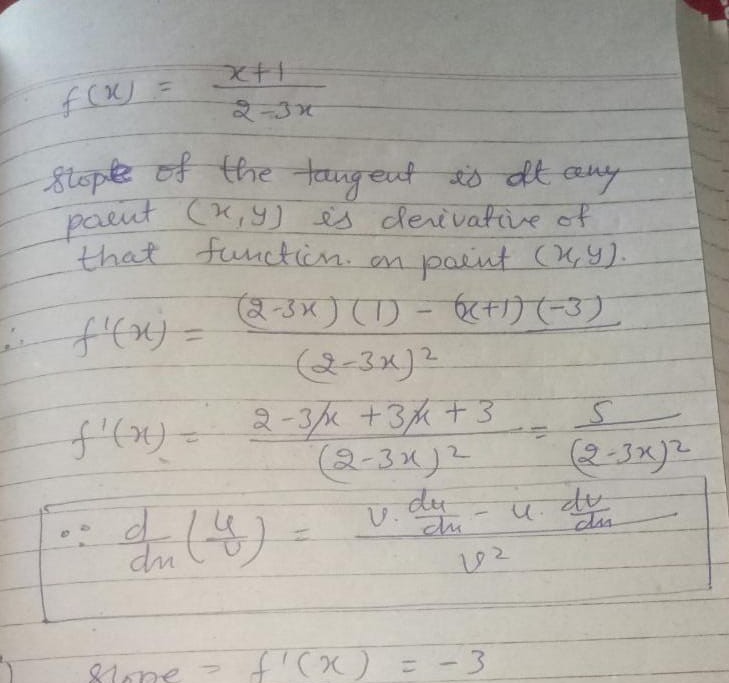 f(x) = x+1 / 2-3x
slope of the tangent is at any
point (x,y) is derivative of
that function. on point (x,y).
∴ f'(x) = (2-3x)(1) - (x+1)(-3) / (2-3x)²
f'(x) = 2-3x+3x+3 / (2-3x)² = 5 / (2-3x)²
∵ d/dx (u/v) = v. du/dx - u. dv/dx / v²
) slope = f'(x) = -3